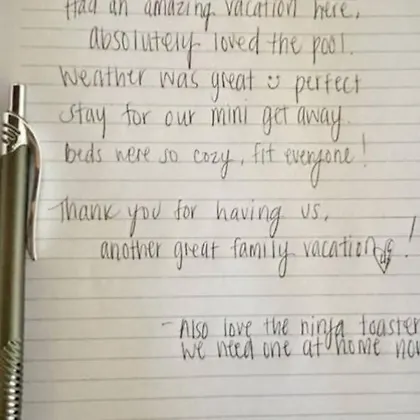 Had an amazing vacation here,
absolutely loved the pool.
Weather was great :) perfect
stay for our mini get away.
beds were so cozy, fit everyone!
Thank you for having us,
another great family vacation!
- Also love the ninja toaster
we need one at home now